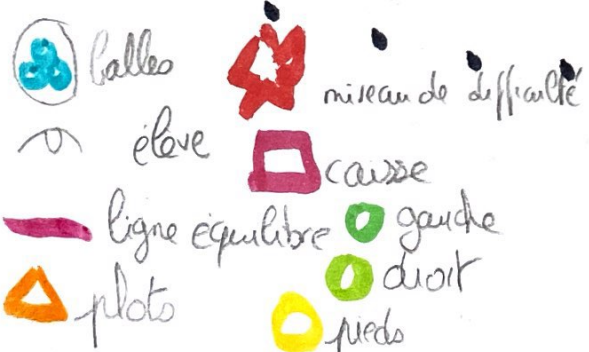 balles
niveau de difficulté
élève
caisse
ligne équilibre
gauche
droit
plots
pieds